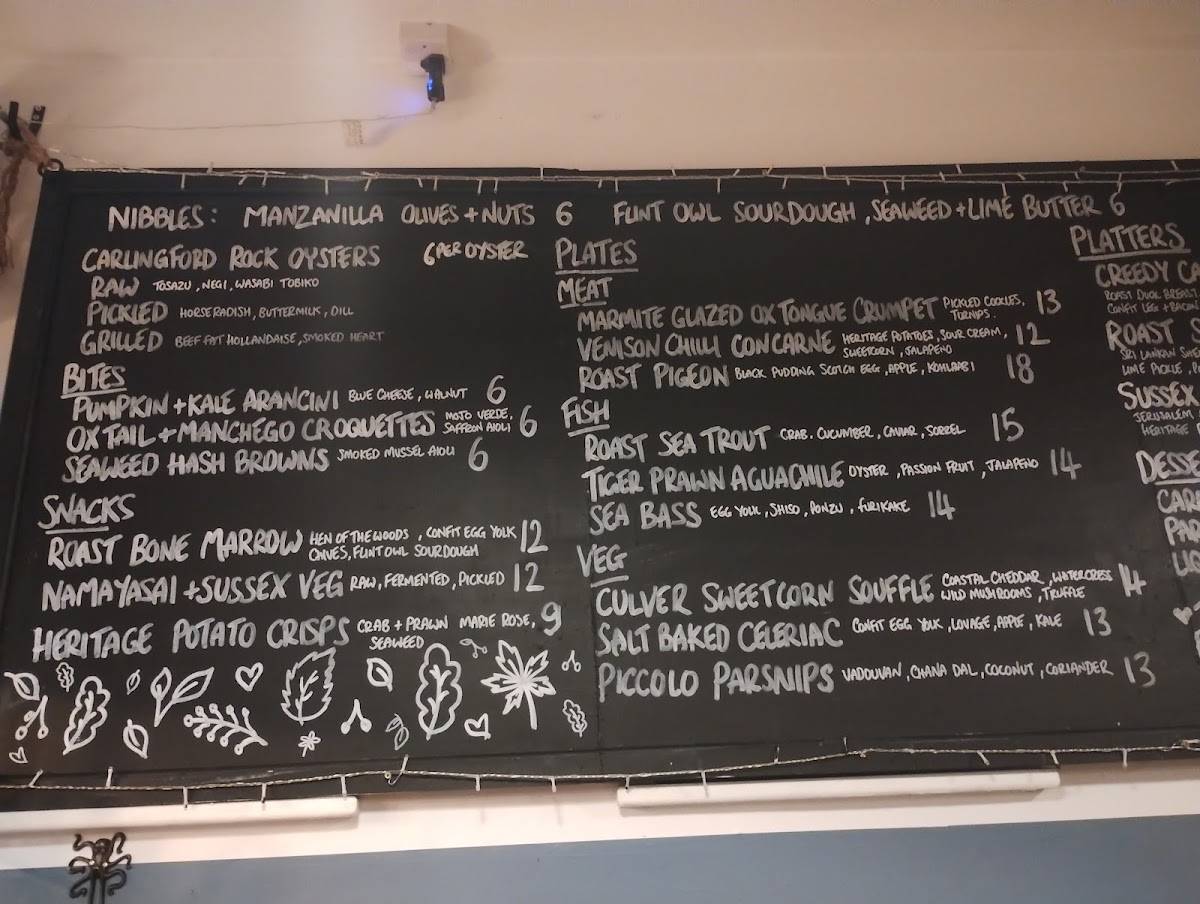 NIBBLES: MANZANILLA OLIVES + NUTS 6 FLINT OWL SOURDOUGH, SEAWEED + LIME BUTTER 6
CARLINGFORD ROCK OYSTERS 6 PER OYSTER
RAW TOSAZU, NEGI, WASABI TOBIKO
PICKLED HORSERADISH, BUTTERMILK, DILL
GRILLED BEEF FAT HOLLANDAISE, SMOKED HEART
BITES
PUMPKIN + KALE ARANCINI BLUE CHEESE, WALNUT 6
OXTAIL + MANCHEGO CROQUETTES MOJO VERDE, SAFFRON AIOLI 6
SEAWEED HASH BROWNS SMOKED MUSSEL AIOLI 6
SNACKS
ROAST BONE MARROW HEN OF THE WOODS, CONFIT EGG YOLK 12
CHIVES, FLINT OWL SOURDOUGH
NAMAYASAI + SUSSEX VEG RAW, FERMENTED, PICKLED 12
HERITAGE POTATO CRISPS CRAB + PRAWN MARIE ROSE, 9
SEAWEED
PLATES
MEAT
MARMITE GLAZED OX TONGUE CRUMPET PICKLED COCKLES, 13
TURNIPS.
VENISON CHILLI CON CARNE HERITAGE POTATOES, SOUR CREAM, 12
SWEETCORN, JALAPENO
ROAST PIGEON BLACK PUDDING SCOTCH EGG, APPLE, KOHLRABI 18
FISH
ROAST SEA TROUT CRAB. CUCUMBER, CAVIAR, SORREL 15
TIGER PRAWN AGUACHILE OYSTER, PASSION FRUIT, JALAPENO 14
SEA BASS EGG YOLK, SHISO, PONZU, FURIKAKE 14
VEG
CULVER SWEETCORN SOUFFLE COASTAL CHEDDAR, WATERCRESS 14
WILD MUSHROOMS, TRUFFLE
SALT BAKED CELERIAC CONFIT EGG YOLK, LOVAGE, APPLE, KALE 13
PICCOLO PARSNIPS VADOUVAN, CHANA DAL, COCONUT, CORIANDER 13
PLATTERS
CREEDY CA
ROAST DUCK BREAST
CONFIT LEG + BACON
ROAST S
SRI LANKAN
LIME PICKLE, P
SUSSEX
JERUSALEM
HERITAGE
DESSE
CAR
PA
LIG